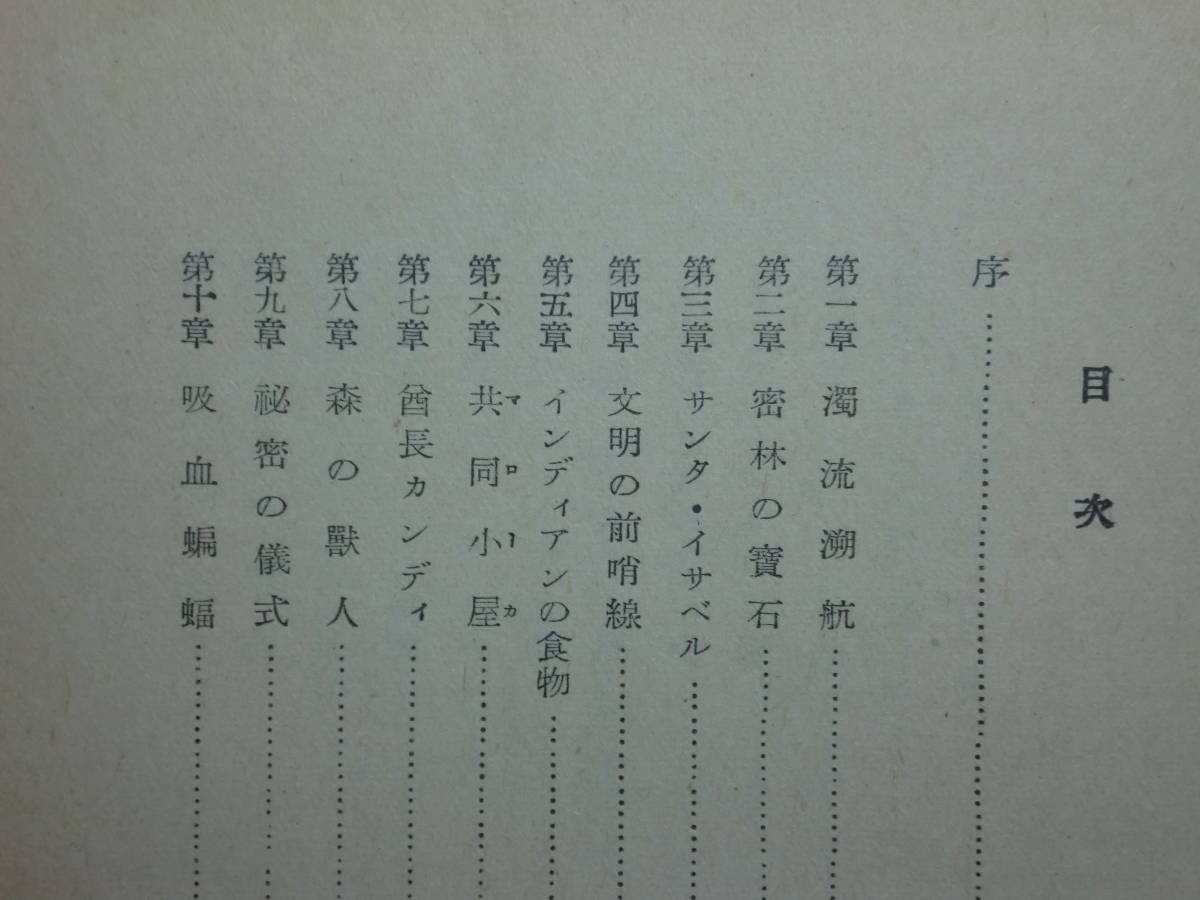 目次
序
第一章 濁流溯航
第二章 密林の寶石
第三章 サンタ・イサベル
第四章 文明の前哨線
第五章 インディアンの食物
第六章 共同小屋
マローカ
第七章 酋長カンディ
第八章 森の獸人
第九章 祕密の儀式
第十章 吸血蝙蝠